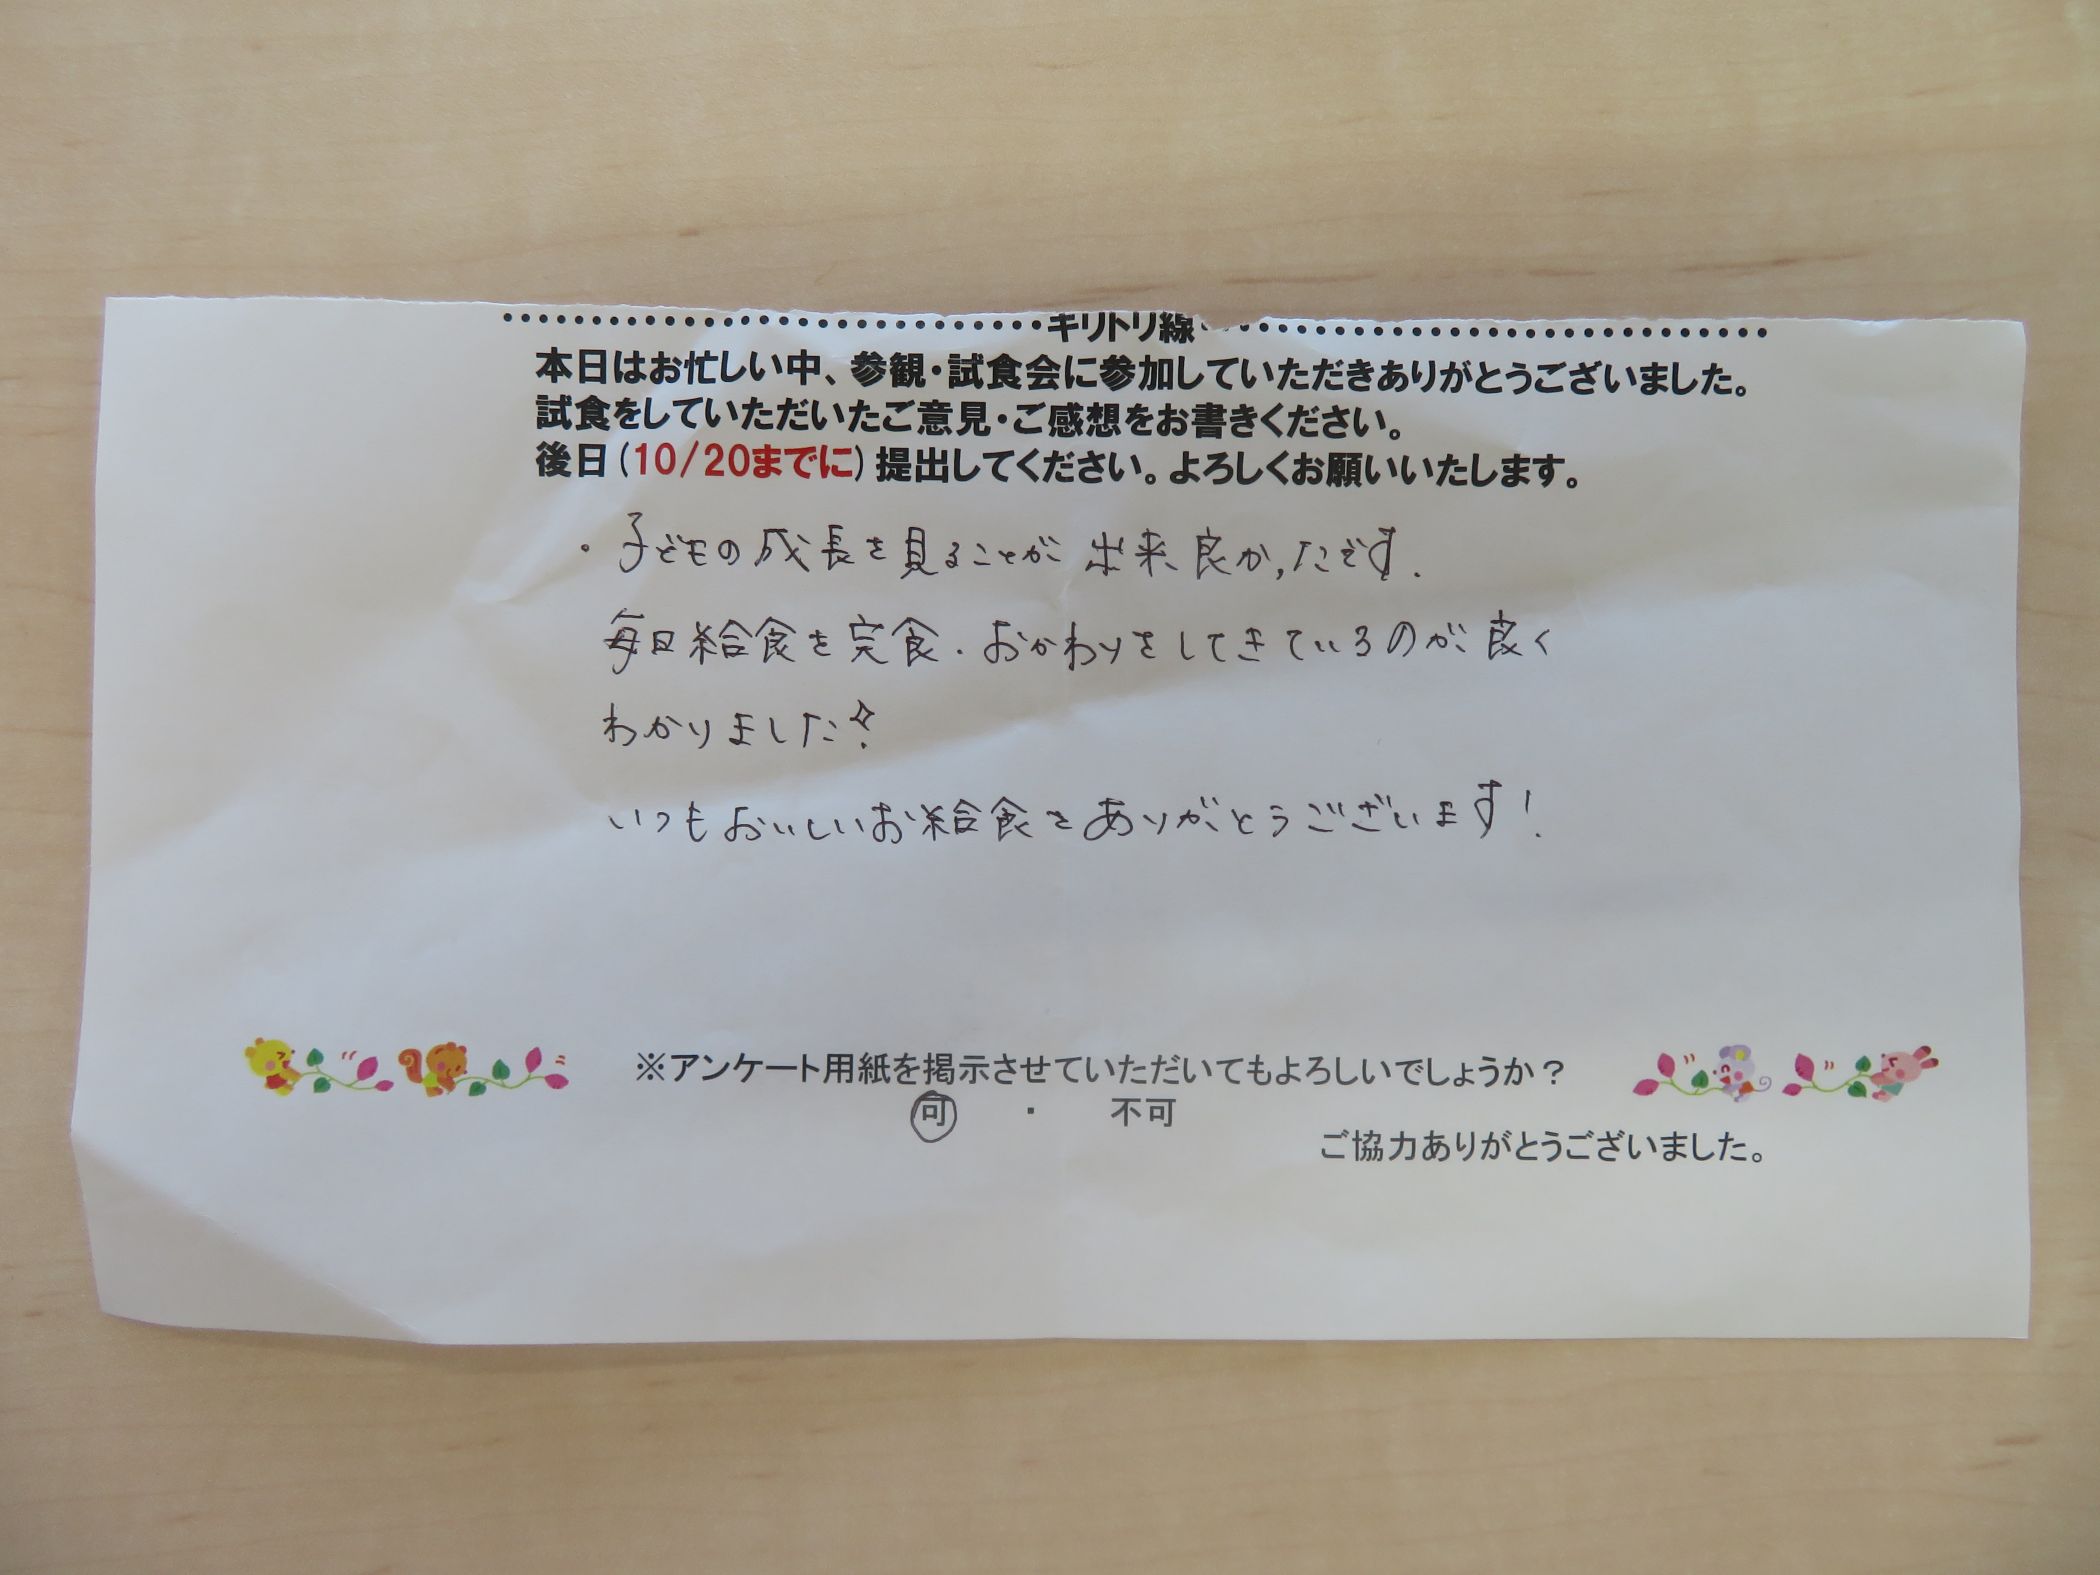 キリトリ線
本日はお忙しい中、参観・試食会に参加していただきありがとうございました。
試食をしていただいたご意見・ご感想をお書きください。
後日(10/20までに)提出してください。よろしくお願いいたします。
・子どもの成長を見ることが出来良かったです.
毎日給食を完食.おかわりをしてきているのが良く
わかりました!
いつもおいしいお給食をありがとうございます!
※アンケート用紙を掲示させていただいてもよろしいでしょうか?
可 ・ 不可
ご協力ありがとうございました。